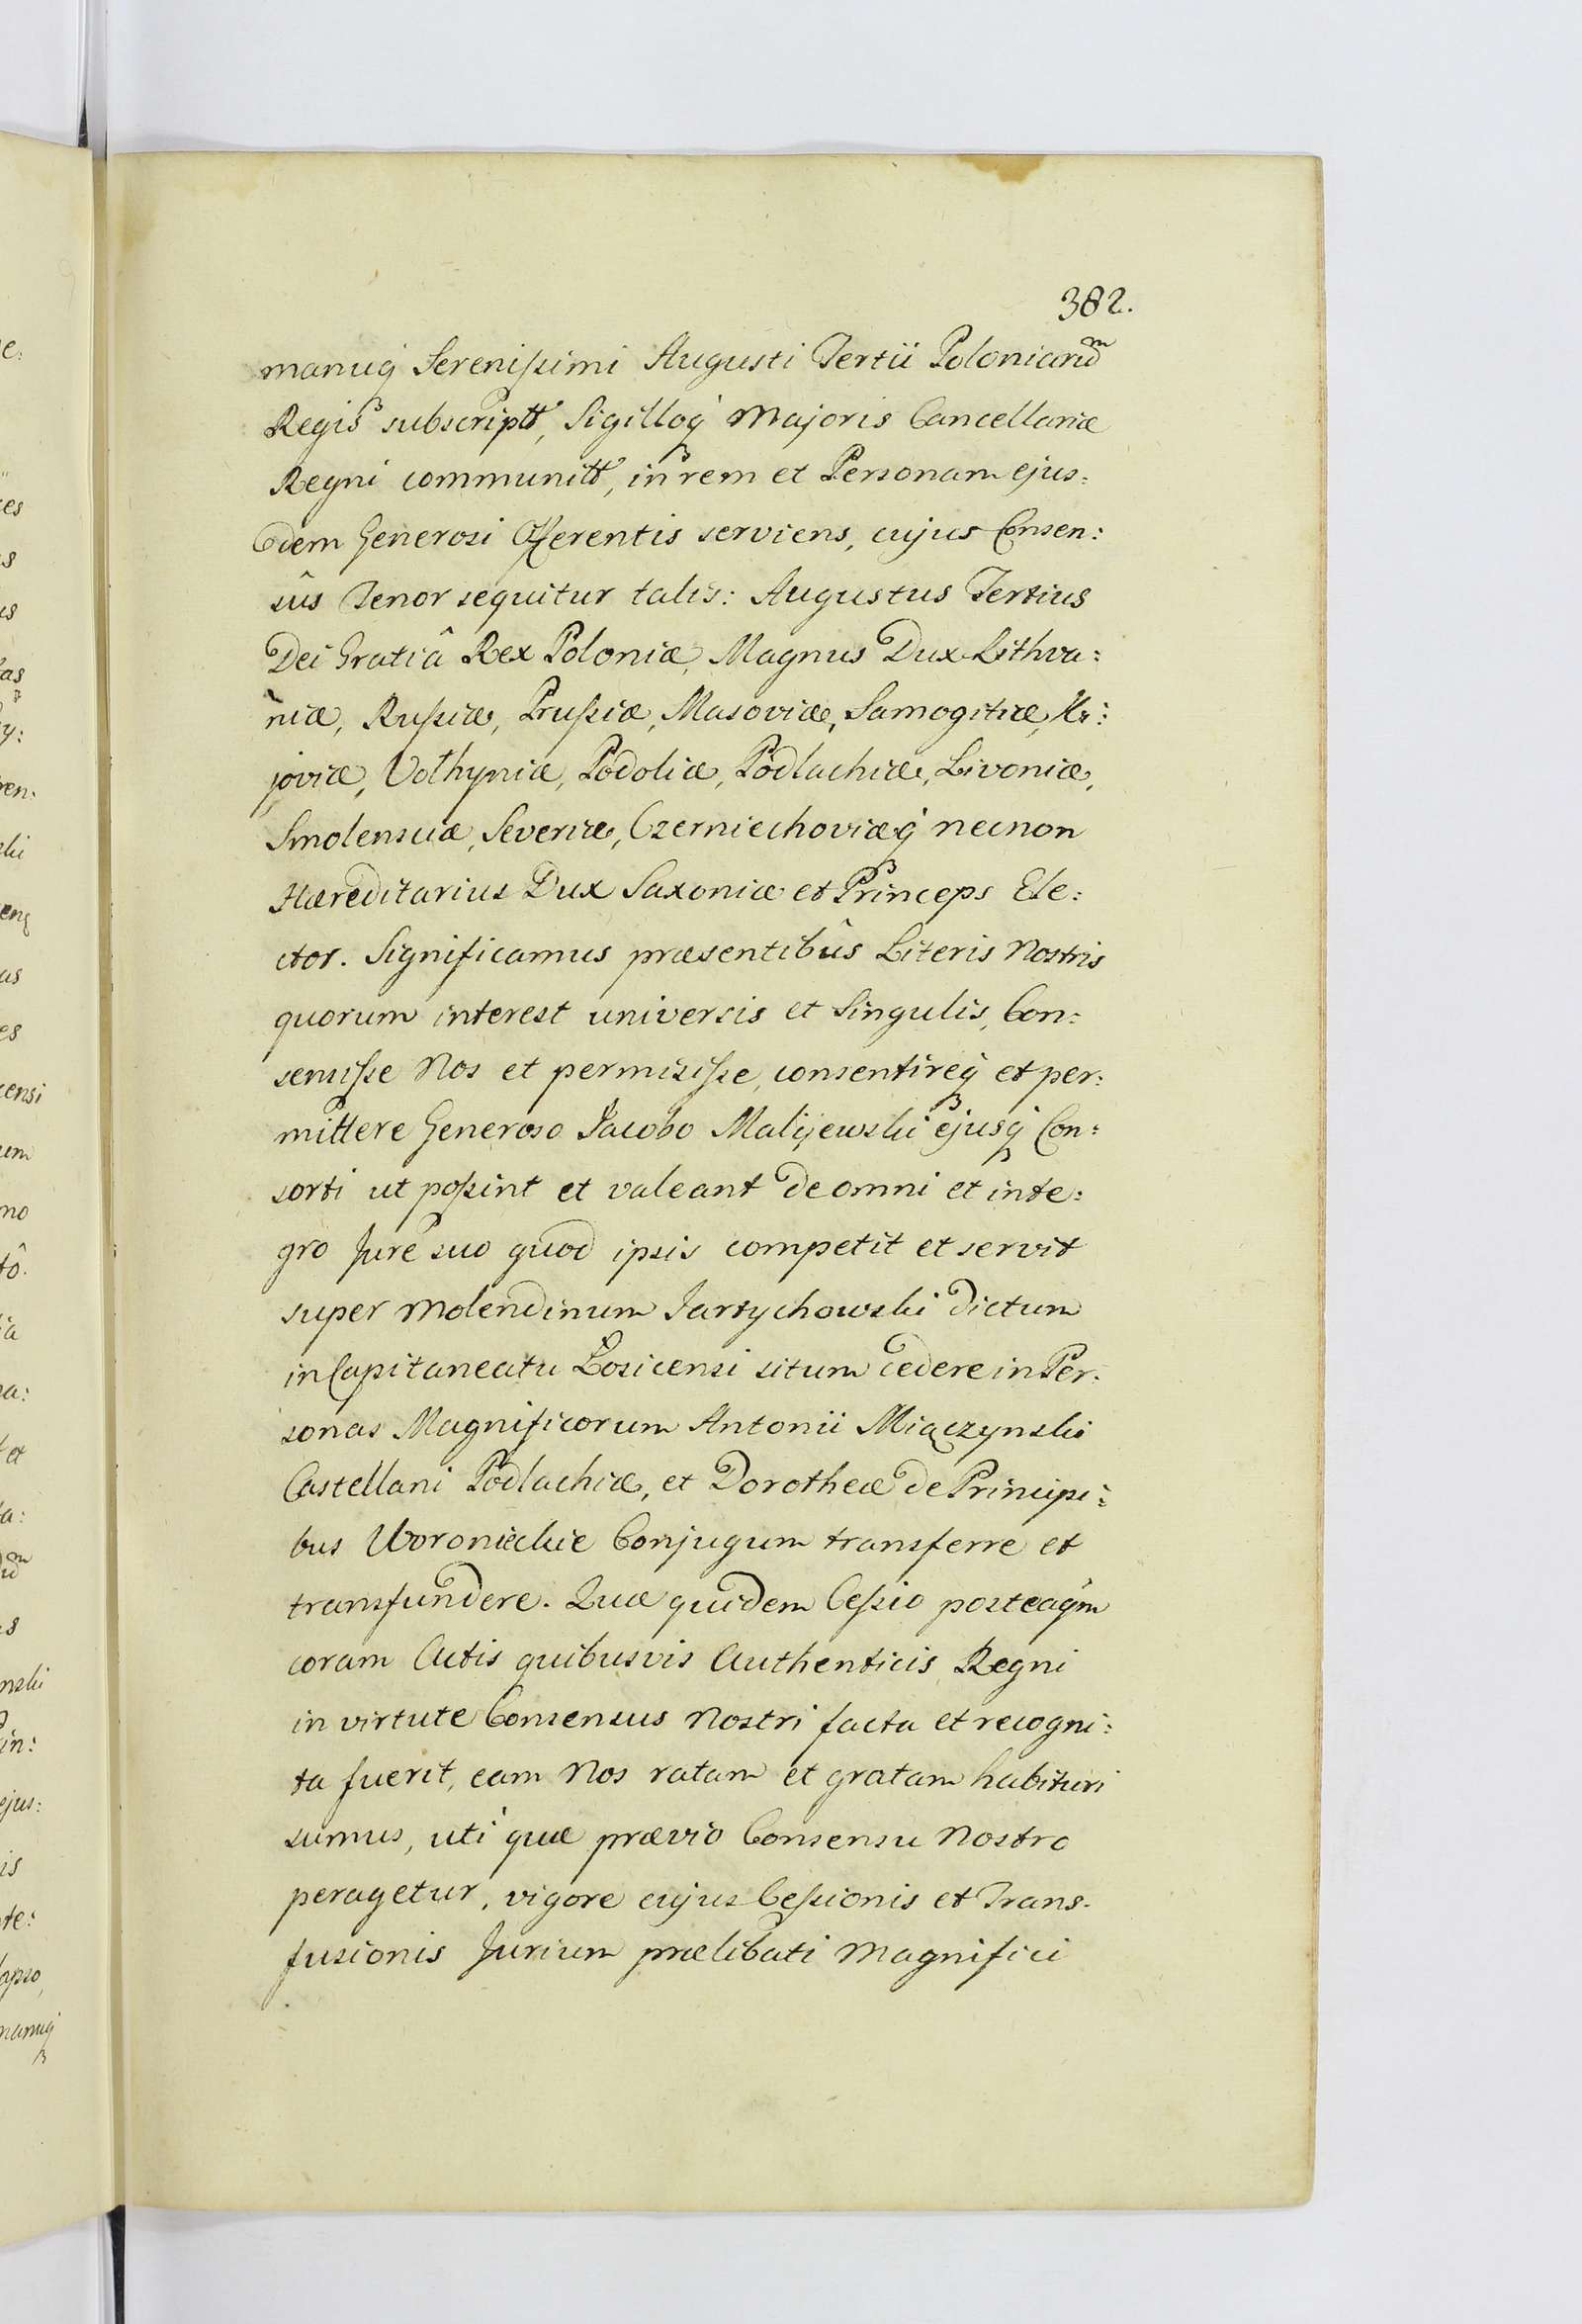 382.
manuq́ꝫ Serenissimi Augusti Tertii Poloniarũm
Regis subscriptt, Sigilloq́ꝫ Majoris Cancellariæ
Regni communitt, in rem et Personam ejus:
dem Generosi Offerentis serviens, cujus Consen:
sûs Tenor sequitur talis: Augustus Tertius
Dei Gratiâ Rex Poloniæ, Magnus Dux Lithva:
niæ, Russiæ, Prussiæ, Masoviæ, Samogitiæ, Ki:
joviæ, Volhyniæ, Podoliæ, Podlachiæ, Livoniæ,
Smolensciæ, Severiæ, Czerniechoviæq́ꝫ necnon
Hæreditarius Dux Saxoniæ et Princeps Ele:
ctor. Significamus præsentibûs Literis Nostris
quorum interest universis et Singulis, Con:
sensisse Nos et permisisse, consentireq́ꝫ et per:
mittere Generoso Jacobo Malijewski ejusq́ꝫ Con:
sorti ut possint et valeant de omni et inte:
gro Jure suo quod ipsis competit et servit
super Molendinum Jartychowski dictum
in Capitaneatu Łosicensi situm cedere in Per:
sonas Magnificorum Antonii Miączynski
Castellani Podlachiæ, et Dorotheæ de Principi:
bus Woronieckie Conjugum transferre et
transfundere. Quæ quidem Cessio posteaq́m
coram Actis quibusvis Authenticis Regni
in virtute Consensus Nostri facta et recogni:
ta fuerit, eam Nos ratam et gratam habituri
sumus, uti quæ prævio Consensu Nostro
peragetur, vigore cujus Cessionis et Trans-
fusionis Jurium prælibati Magnifici